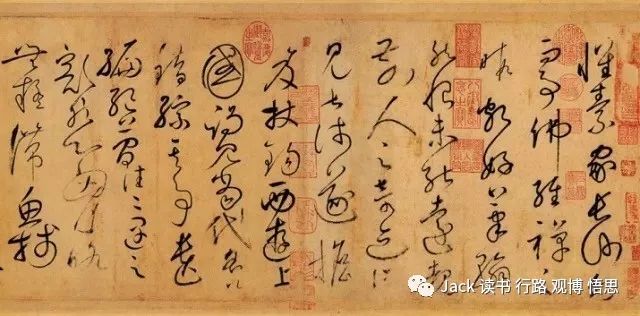 懷素家長沙幼而
事佛經禪之
暇頗好筆翰
然恨未能遠覩
前人之奇迹所
見甚淺遂擔
笈杖錫西遊上
國謁見當代名公
錯綜其事遺
編絕簡往往遇之
豁然心胸略
無疑滯魚箋
Jack 读书 行路 观博 悟思